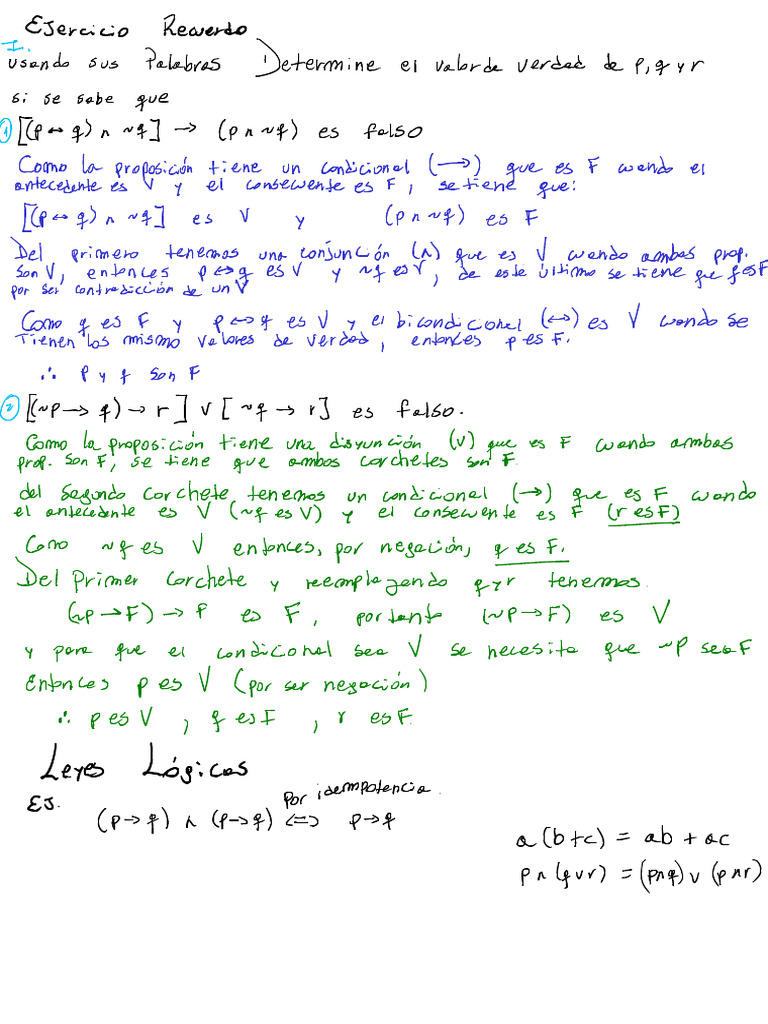 Ejercicio Recuerdo
I.
usando sus Palabras Determine el valor de verdad de p, q y r
si se sabe que
1) [(p ↔ q) ∧ ~q] → (p ∧ ~q) es falso
Como la proposición tiene un condicional (→) que es F cuando el
antecedente es V y el consecuente es F, se tiene que:
[(p ↔ q) ∧ ~q] es V y (p ∧ ~q) es F
Del primero tenemos una conjunción (∧) que es V cuando ambas prop.
son V, entonces p ↔ q es V y ~q es V, de este último se tiene que q es F
por ser contradicción de un V
Como q es F y p ↔ q es V y el bicondicional (↔) es V cuando se
tienen los mismo valores de verdad, entonces p es F.
∴ p y q son F
2) [(~p → q) → r] ∨ [~q → r] es falso.
Como la proposición tiene una disyunción (∨) que es F cuando ambas
prop. son F, se tiene que ambos corchetes son F
del segundo corchete tenemos un condicional (→) que es F cuando
el antecedente es V (~q es V) y el consecuente es F (r es F)
Como ~q es V entonces, por negación, q es F.
Del Primer corchete y reemplazando q y r tenemos.
(~p → F) → F es F, por tanto (~p → F) es V
y para que el condicional sea V se necesita que ~p sea F
Entonces p es V (por ser negación)
∴ p es V, q es F, r es F
Leyes Lógicas
EJ.
por idempotencia.
(p → q) ∧ (p → q) ⟺ p → q
a(b+c) = ab + ac
p ∧ (q ∨ r) = (p ∧ q) ∨ (p ∧ r)